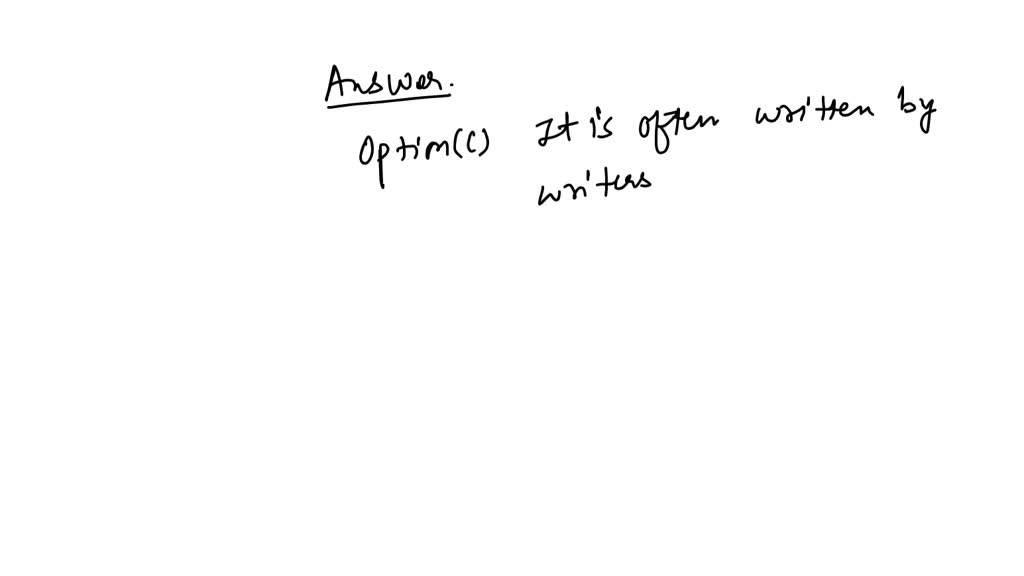 Answer.
Option(C) It is often written by
writers